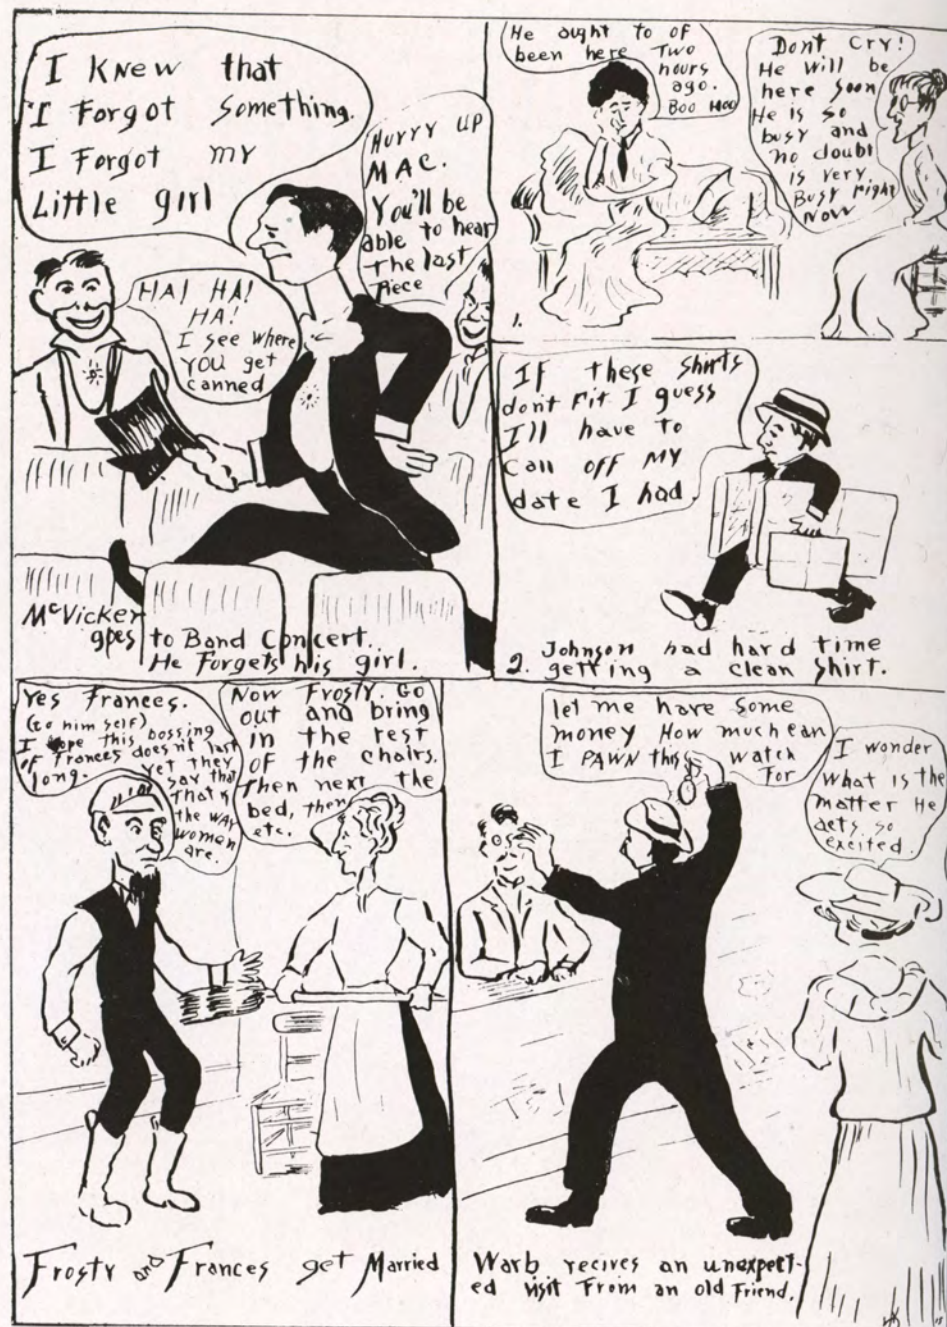 I Knew that
I Forgot something.
I Forgot my
Little girl
Hurry up
MAC.
You'll be
able to hear
the last
Piece
HA! HA!
HA!
I see where
YOU get
canned
McVicker
goes to Band Concert.
He Forgets his girl.
He ought to of
been here Two
hours
ago.
Boo Hoo
Dont Cry!
He will be
here soon
He is so
busy and
no doubt
is very
Busy right
Now
1.
IF these shirts
dont Fit I guess
I'll have to
Call OFF MY
date I had
2. Johnson had hard time
getting a clean shirt.
Yes Frances.
(to him self)
I hope this bossing
OF Frances does'nt last
long. Yet they
say that
that is
the way
women
are.
Now Frosty. Go
out and bring
in the rest
OF the chairs.
Then next the
bed, then
etc.
Frosty and Frances get Married
let me have some
money How much can
I PAWN this watch
For
I wonder
what is the
matter He
acts so
excited.
Warb recives an unexpect-
ed visit From an old Friend.